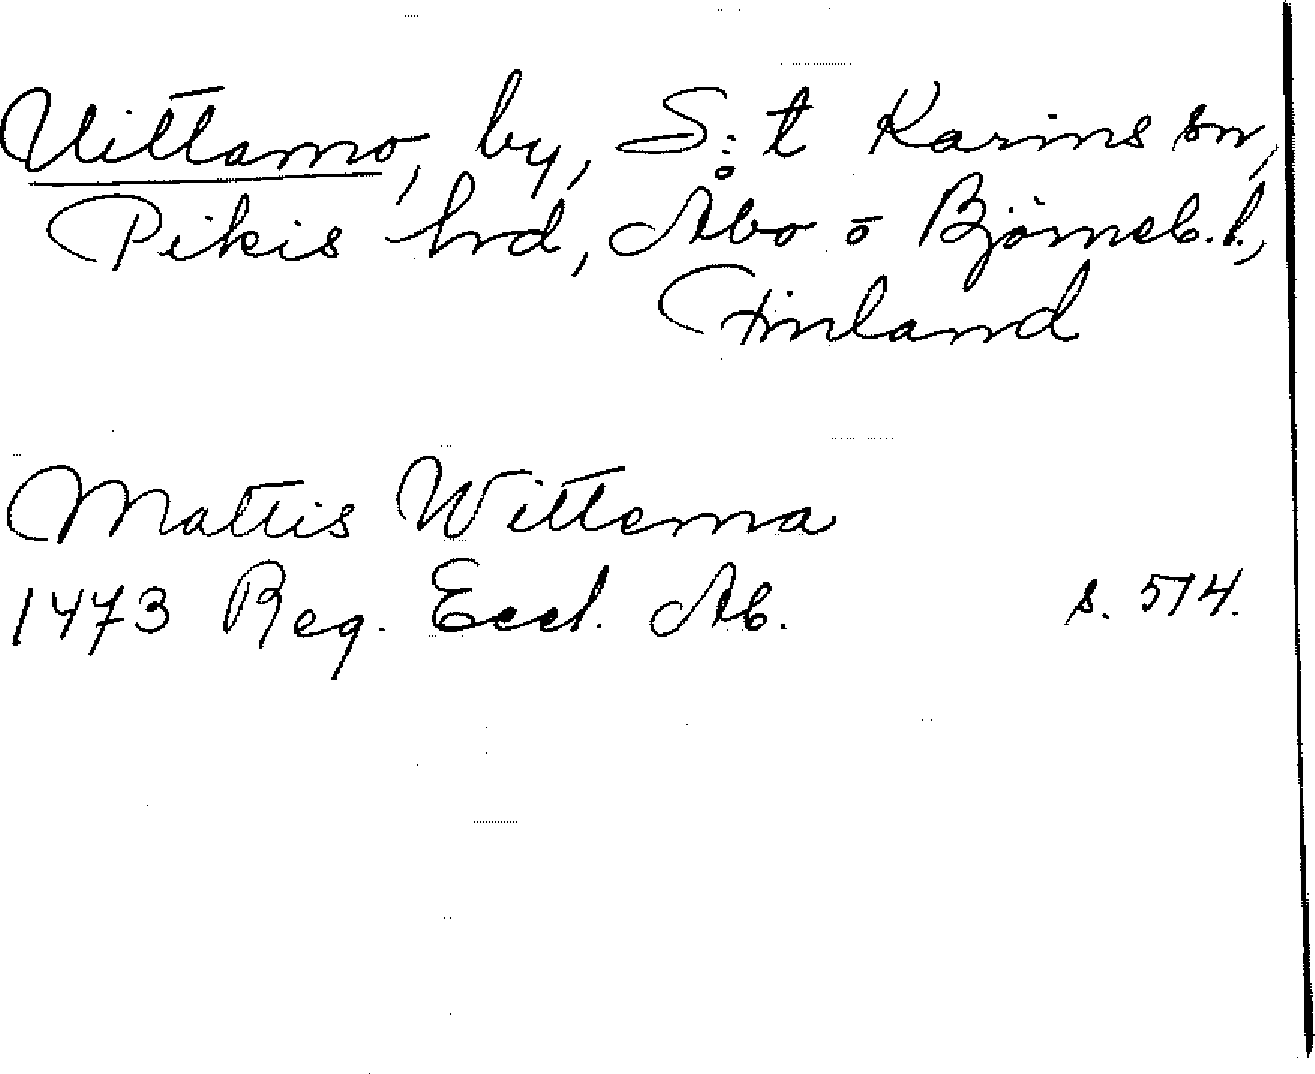 Uittamo, by, S:t Karins sn,
Pikis hrd, Åbo o Björneb. l.,
Finland
Mattis Wittema
1473 Reg. Eccl. Ab. s. 514.